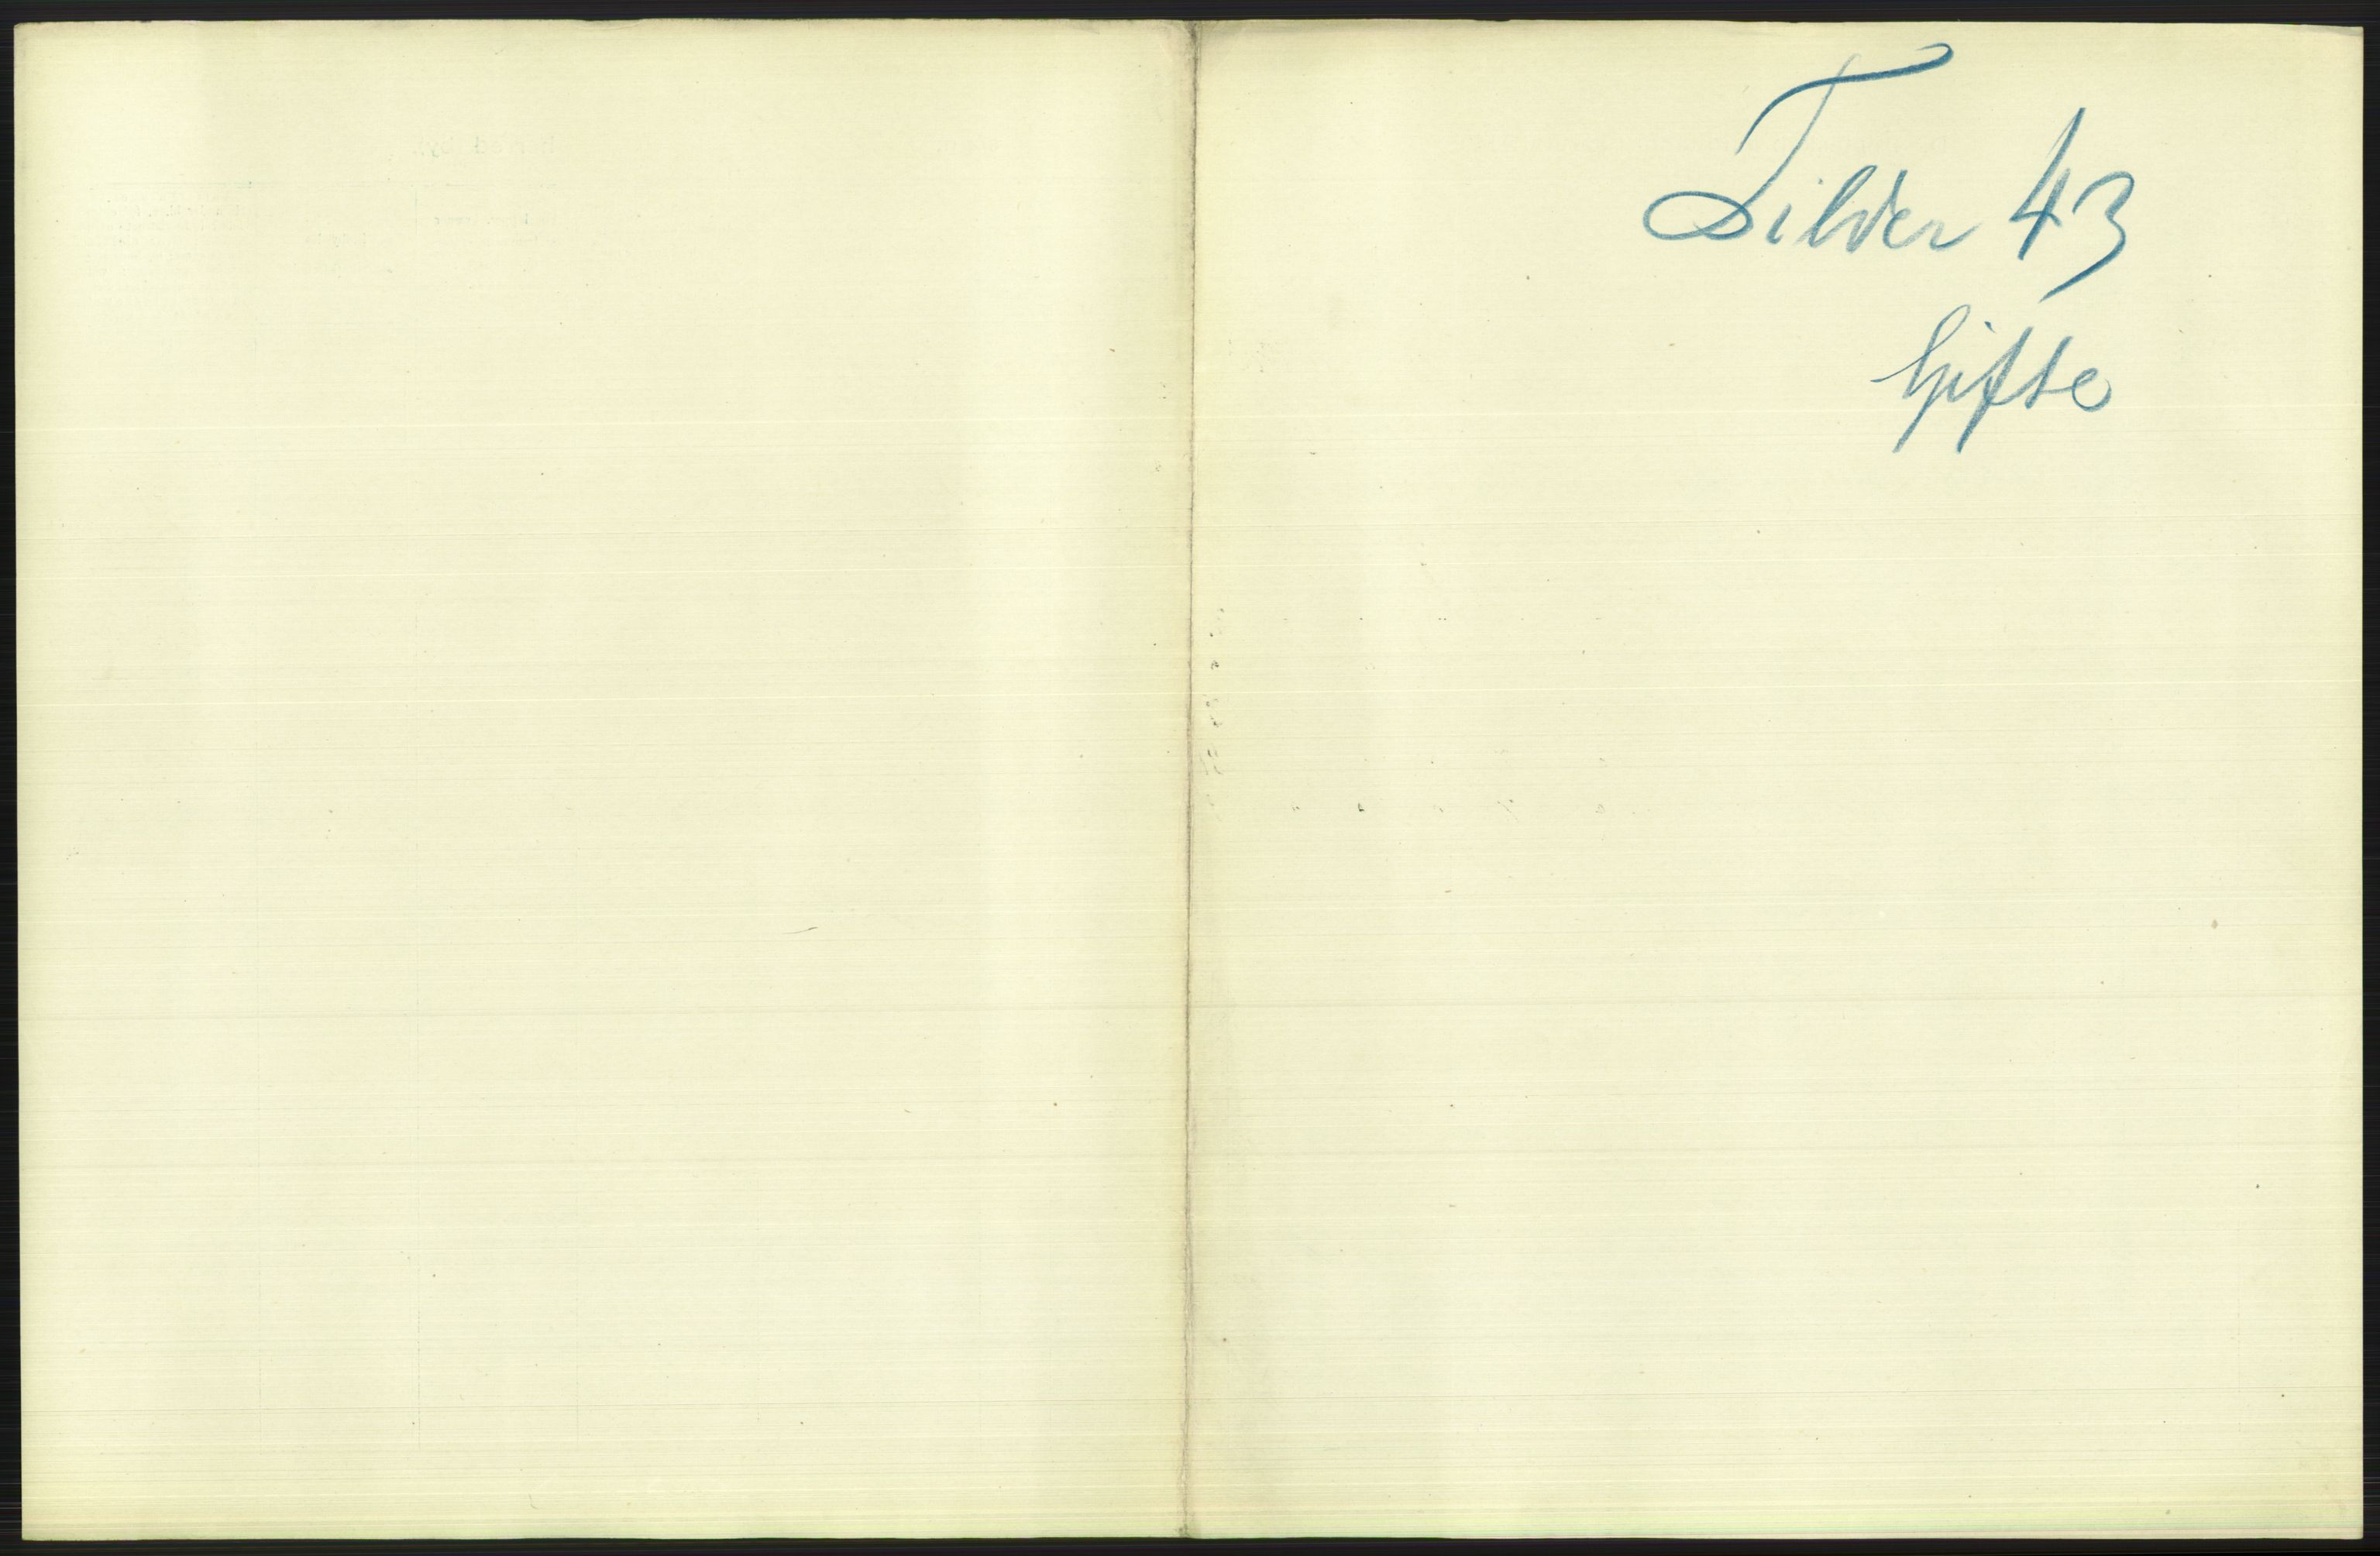 Tilder 43
Gifte